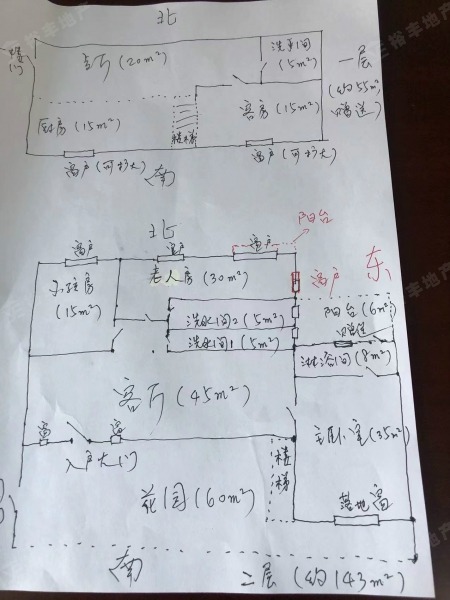 北
客厅 (20m²)
洗手间
(5m²)
一层
(约55m²
赠送)
厨房 (15m²)
楼梯
客房 (15m²)
窗户 (可扩大)
窗户 (可扩大)
南
北
阳台
窗户
窗户
窗户
东
小孩房
(15m²)
老人房 (30m²)
窗户
阳台 (6m²)
赠送
洗水间2 (5m²)
洗水间1 (5m²)
淋浴间 (8m²)
客厅 (45m²)
主卧室 (35m²)
窗
窗
入户大门
楼梯
花园 (60m²)
落地窗
南
二层 (约143m²)
三裕丰地产